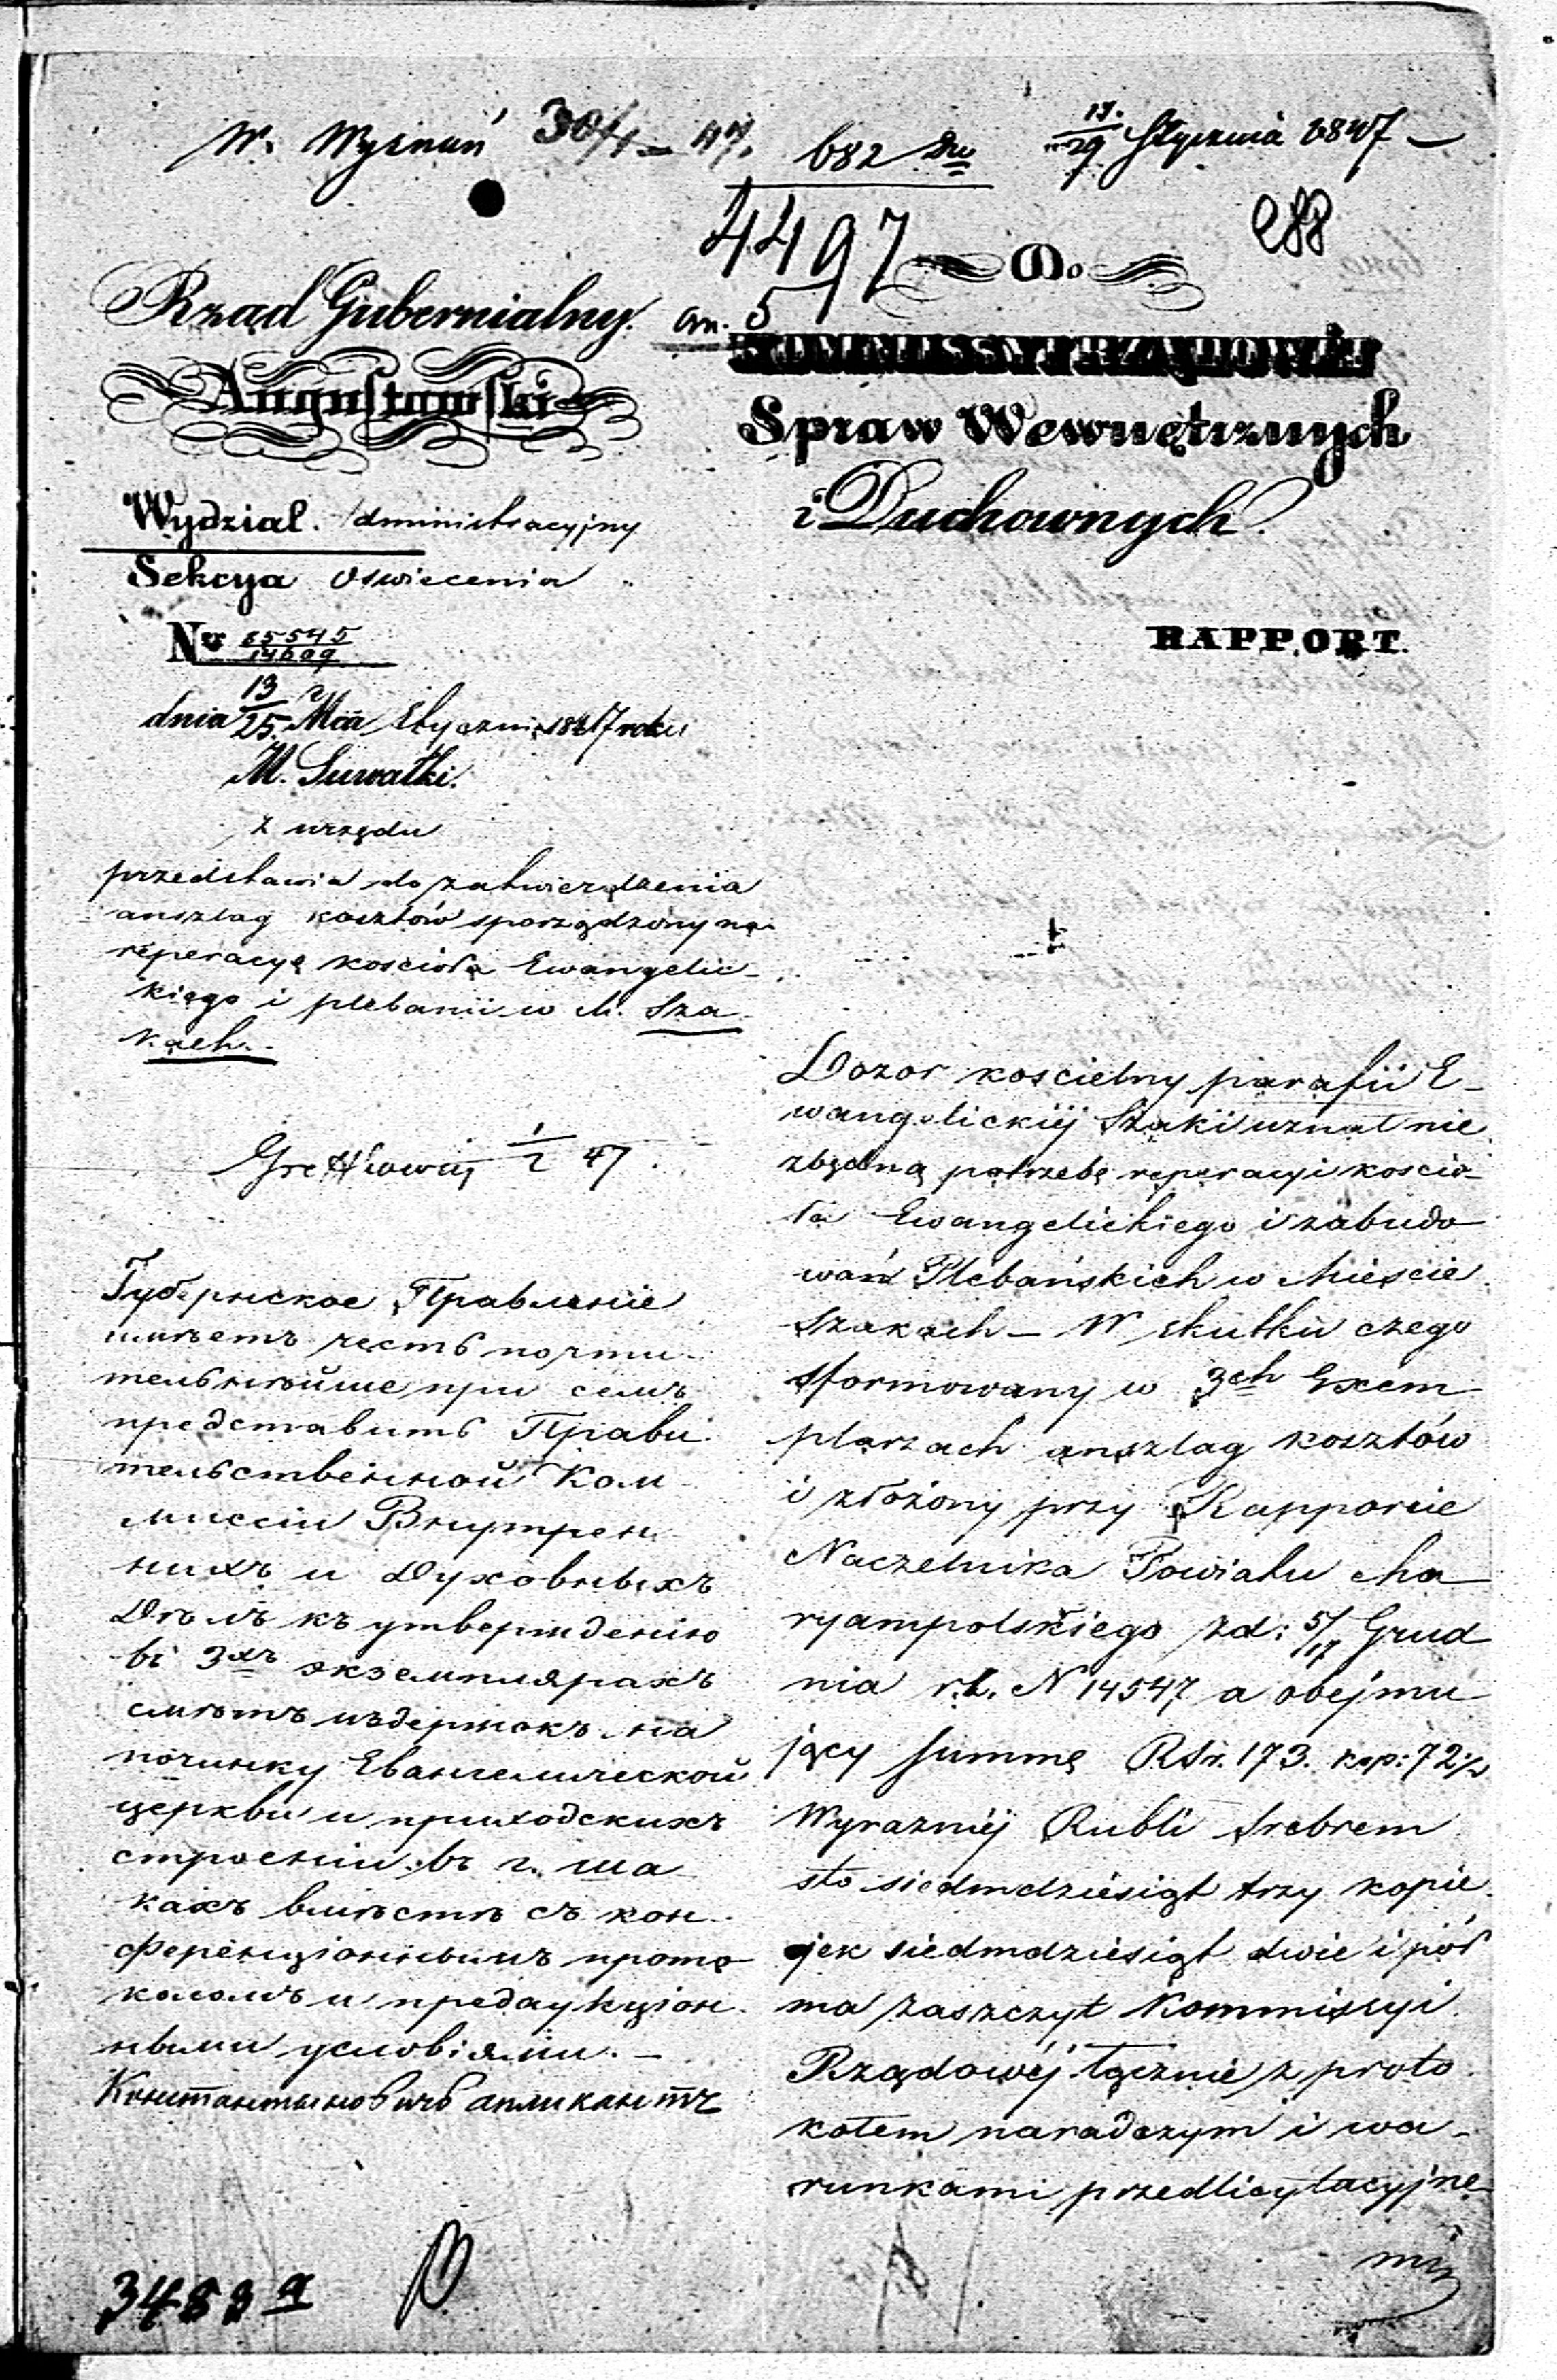 W. Wysnuń 30/1 – 47. 682 17./29 Stycznia 1847 –
4497 Do 288
an. 5
Rząd Gubernialny.
Augustowski
Wydział. Administracyjny
Sekcya Oswiecenia
Nr 65545/14609
dnia 13/25 Mca Stycznia 1847 roku
M. Suwałki.
z urzędu
przedstawia do zatwierdzenia
anszlag kosztów sporządzony na
reperacyę koscioła Ewangelic-
kiego i plebanii w M. Sza-
kach.-
1/2 47.
Губернское Правленіе
имѣетъ честь почти-
тельнѣйше при семъ
представить Прави-
тельственной Ком-
миссіи Внутрен-
нихъ и Духовныхъ
Дѣлъ къ утвержденію
въ 3хъ экземплярахъ
смѣтъ издержекъ на
починку Евангелической
церкви и приходскихъ
строеній въ г. Ша-
кахъ вмѣстѣ съ кон-
ференціоннымъ прото-
коломъ и предаукціон-
ными условіями. –
аппликантъ
3488 a
KOMMISSYI RZĄDOWÉJ
Spraw Wewnętrznych
i Duchownych.
RAPPORT.
Dozor koscielny parafii E-
wangelickiéj Szaki uznał nie
zbędną potrzebę reperacyi koscio-
ła Ewangelickiego i zabudo
wań Plebańskich w Mieście
Szakach – W skutku czego
sformowany w 3ch Exem
plarzach anszlag kosztów
i złożony przy Rapporcie
Naczelnika Powiatu Ma
ryampolskiego z d: 5/17 Grud
nia r.b. N 14547 a obejmu
jący summę RSr. 173. kop: 72½
Wyrazniéj Rubli srebrem
sto siedmdziesiąt trzy kopie-
jek siedmdziesiąt dwie i pół
ma zaszczyt Kommissyi
Rządowéj łącznie z proto-
kołem naradczym i wa-
runkami przedlicytacyjne
mi